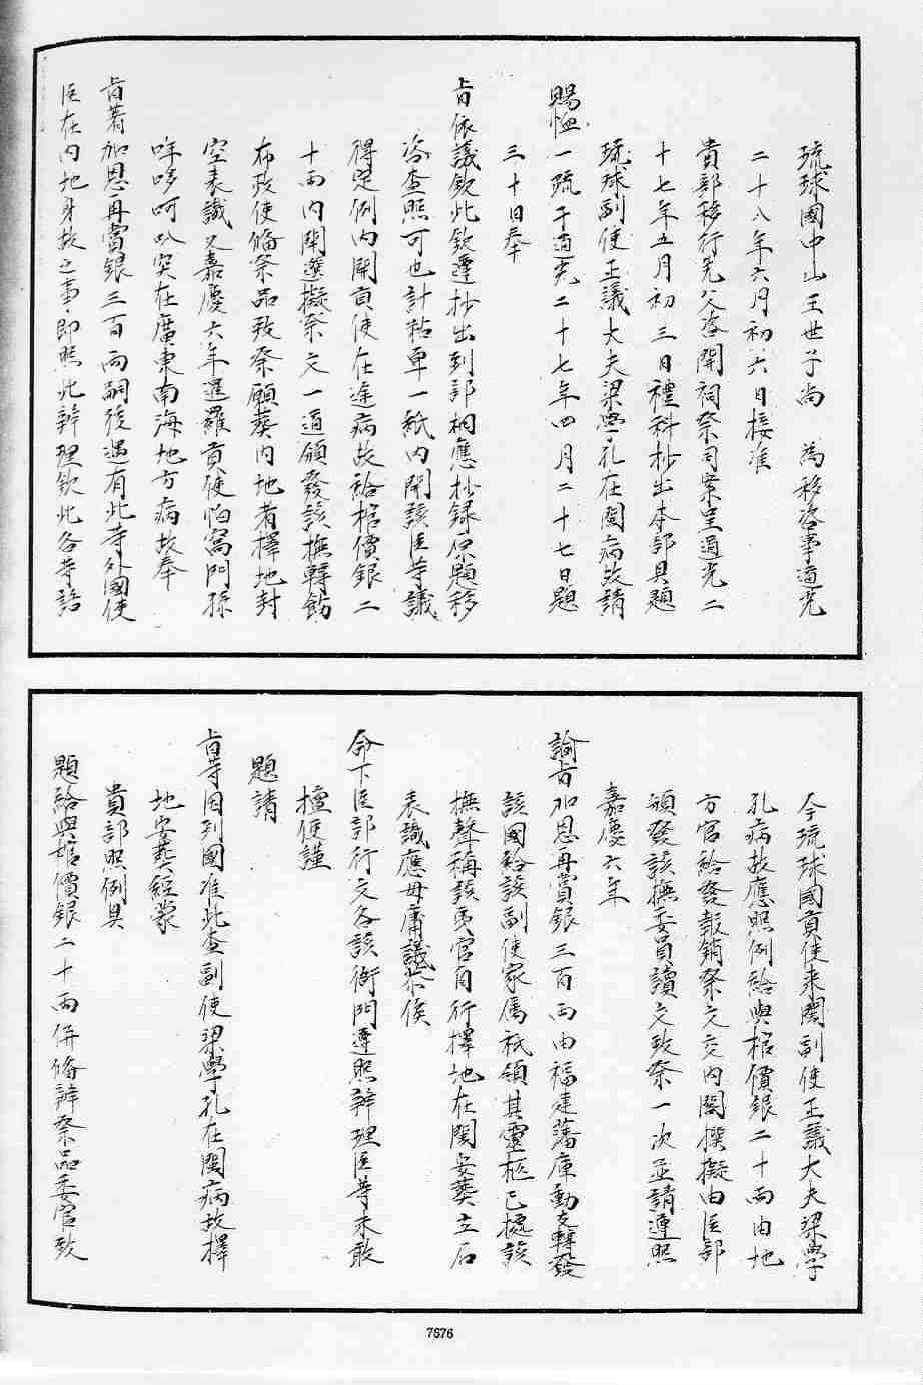 琉球國中山王世子尚　為移咨事道光
二十八年六月初六日接准
貴部移行先父咨開祠祭司案呈道光二
十七年五月初三日禮科抄出本部具題
琉球副使正議大夫梁學孔在閩病故請
賜恤一疏于道光二十七年四月二十七日題
三十日奉
旨依議欽此欽遵抄出到部相應抄録原題移
咨查照可也計粘单一紙内開該臣等議
得定例内開貢使在途病故給棺價銀二
十両内閣選擬祭文一道頒發該撫轉飭
布政使備祭品致祭願葬内地者擇地封
空表識又嘉慶六年暹羅貢使怕窩們孫
哖哆呵叭突在廣東南海地方病故奉
旨着加恩再賞銀三百両嗣後遇有此等外國使
臣在内地身故之事即照此辦理欽此各等語
今琉球國貢使来閩副使正議大夫梁學
孔病故應照例給與棺價銀二十両由地
方官給發報銷祭文交内閣撰擬由臣部
頒發該撫委員讀文致祭一次並請遵照
嘉慶六年
諭旨加恩再賞銀三百両由福建藩庫動支轉發
該國給該副使家属祗領其靈柩已據該
撫聲稱該夷官自行擇地在閩安葬立石
表識應毋庸議恭候
命下臣部行文各該衙門遵照辦理臣等未敢
擅便謹
題請
旨等因到國准此查副使梁學孔在閩病故擇
地安葬經蒙
貴部照例具
題給與棺價銀二十両併備辦祭品委官致
7676